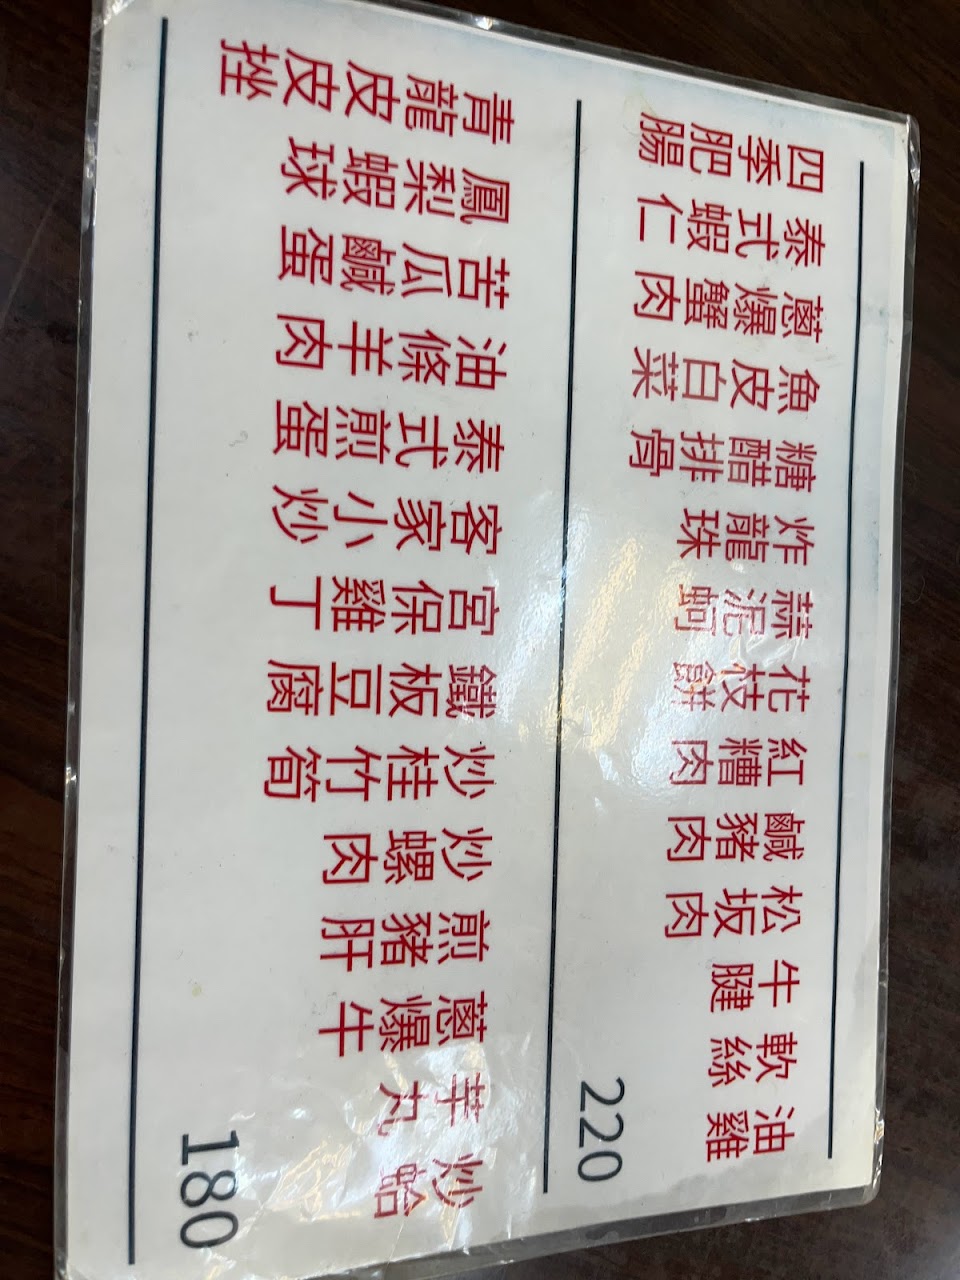 油雞
軟絲
牛腱
松坂肉
鹹豬肉
紅糟肉
花枝餅
蒜泥蚵
炸龍珠
糖醋排骨
魚皮白菜
蔥爆蟹肉
泰式蝦仁
四季肥腸
220
炒蛤
芋丸
蔥爆牛
煎豬肝
炒螺肉
炒桂竹筍
鐵板豆腐
宮保雞丁
客家小炒
泰式煎蛋
油條羊肉
苦瓜鹹蛋
鳳梨蝦球
青龍皮皮挫
180